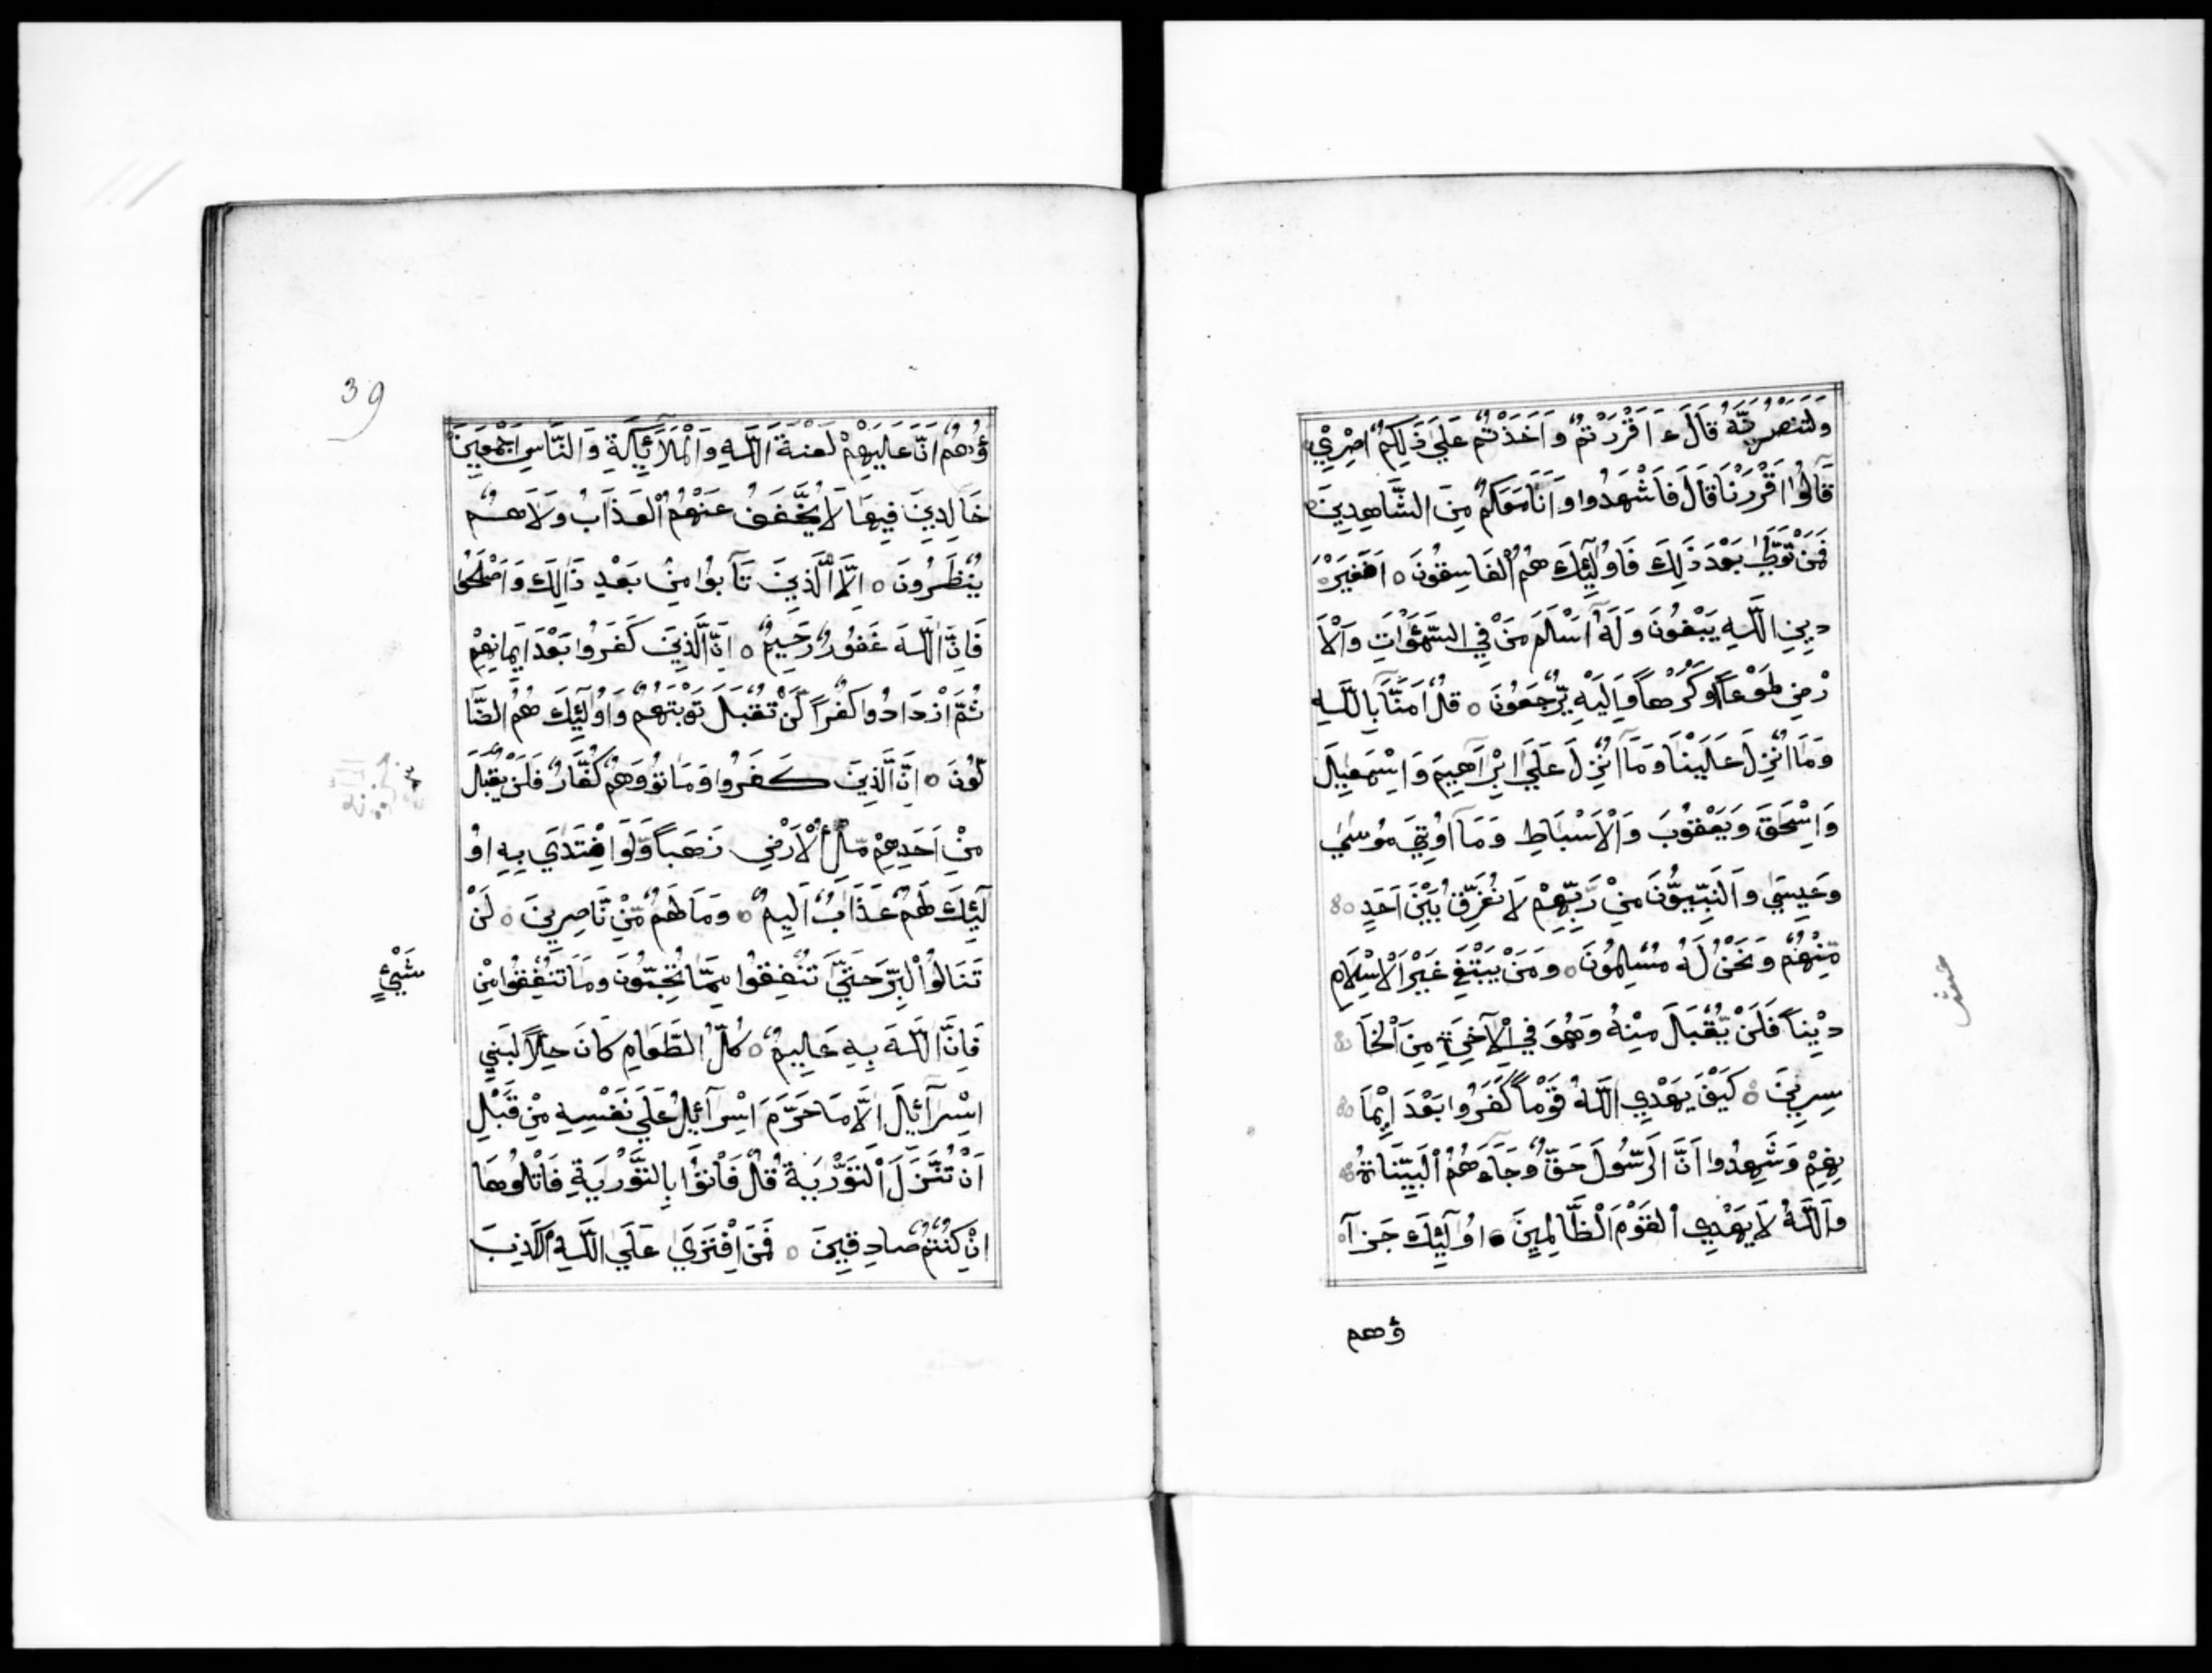 وَلَتَنْصُرُنَّهُ قَالَ ءَاَقْرَرْتُمْ وَاَخَذْتُمْ عَلَيٰ ذَلِكُمْ اِصْرِيْ
قَالُوْا اَقْرَرْنَا قَالَ فَاشْهَدُوا وَاَنَا مَعَكُمْ مِنَ الشَّاهِدِينَ
فَمَنْ تَوَلَّيٰ بَعْدَ ذَلِكَ فَاُولَٰٓئِكَ هُمُ الْفَاسِقُونَ ٥ اَفَغَيْرَ
دِينِ اللَّهِ يَبْغُونَ وَلَهُٓ اَسْلَمَ مَنْ فِي السَّمٰوَاتِ وَالْاَ
رْضِ طَوْعاً وَكَرْهاً وَاِلَيْهِ يُرْجَعُونَ ٥ قُلْ اٰمَنَّا بِاللَّهِ
وَمَا اُنْزِلَ عَلَيْنَا وَمَآ اُنْزِلَ عَلَيٰٓ اِبْرَاهِيمَ وَاِسْمَعِيلَ
وَاِسْحَقَ وَيَعْقُوبَ وَالْاَسْبَاطِ وَمَآ اُوتِيَ مُوسَيٰ
وَعِيسَيٰ وَالنَّبِيُّونَ مِنْ رَبِّهِمْ لَا نُفَرِّقُ بَيْنَ اَحَدٍ
مِنْهُمْ وَنَحْنُ لَهُ مُسْلِمُونَ ٥ وَمَنْ يَبْتَغِ غَيْرَ الْاِسْلَامِ
دِيْناً فَلَنْ يُقْبَلَ مِنْهُ وَهُوَ فِي الْآخِرَةِ مِنَ الْخَا
سِرِينَ ٥ كَيْفَ يَهْدِي اللَّهُ قَوْماً كَفَرُوا بَعْدَ اِيْمَا
نِهِمْ وَشَهِدُوا اَنَّ الرَّسُولَ حَقٌّ وَجَاءَهُمُ الْبَيِّنَاتُ
وَاللَّهُ لَا يَهْدِي الْقَوْمَ الْظَّالِمِينَ ٥ اُولَٰٓئِكَ جَزَآ
ؤهم
39
ؤُهُمْ اَنَّ عَلَيْهِمْ لَعْنَةَ اللَّهِ وَالْمَلَآئِكَةِ وَالنَّاسِ اَجْمَعِينَ
خَالِدِينَ فِيهَا لَا يُخَفَّفُ عَنْهُمُ الْعَذَابُ وَلَا هُمْ
يُنْظَرُونَ ٥ اِلَّا الَّذِينَ تَابُوا مِنْ بَعْدِ ذَالِكَ وَاَصْلَحُوا
فَاِنَّ اللَّهَ غَفُورٌ رَحِيمٌ ٥ اِنَّ الَّذِينَ كَفَرُوا بَعْدَ اِيمَانِهِمْ
ثُمَّ ازْدَادُوا كُفْراً لَنْ تُقْبَلَ تَوْبَتُهُمْ وَاُولَٰٓئِكَ هُمُ الضَّا
لُّونَ ٥ اِنَّ الَّذِينَ كَفَرُوا وَمَاتُو وَهُمْ كُفَّارٌ فَلَنْ يُقْبَلَ
مِنْ اَحَدِهِمْ مِلْءُ الْاَرْضِ ذَهَباً وَلَوِ افْتَدَيٰ بِهِ اُو
لَٰٓئِكَ لَهُمْ عَذَابٌ اَلِيمٌ ٥ وَمَا لَهُمْ مِنْ نَاصِرِينَ ٥ لَنْ
تَنَالُوا الْبِرَّ حَتَّيٰ تُنْفِقُوا مِمَّا تُحِبُّونَ وَمَا تُنْفِقُوا مِنْ
شَيْءٍ
فَاِنَّ اللَّهَ بِهِ عَلِيمٌ ٥ كُلُّ الطَّعَامِ كَانَ حِلاًّ لِبَنِي
اِسْرَآئِيلَ اِلَّا مَا حَرَّمَ اِسْرَآئِيلُ عَلَيٰ نَفْسِهِ مِنْ قَبْلِ
اَنْ تُنَزَّلَ التَّوْرٰيةُ قُلْ فَاْتُوْا بِالتَّوْرٰيةِ فَاتْلُوهَا
اِنْ كُنْتُمْ صَادِقِينَ ٥ فَمَنِ افْتَرَيٰ عَلَيٰ اللَّهِ الْكَذِبَ